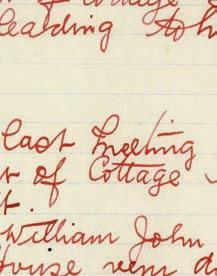 of Cottage
leading to
last Meeting
t of Cottage
t.
William John
ouse